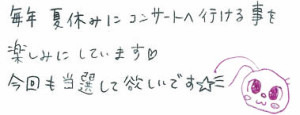 毎年 夏休みにコンサートへ行ける事を
楽しみにしています♡
今回も当選して欲しいです☆彡